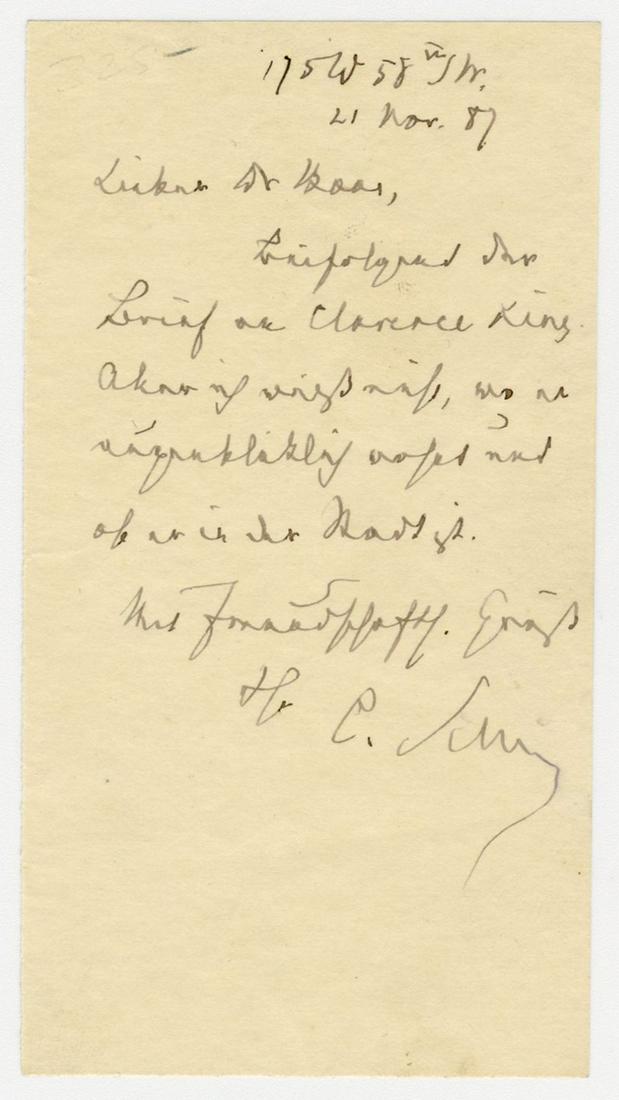 175 W 58th St.
21 Nov. 87
Lieber Dr
Beifolgend der
Brief an Clarence King.
Aber ich weiß nicht, wo er
augenblicklich wohnt und
ob er in der Stadt ist.
Mit freundschaftl. Gruß
Ihr C. Schurz